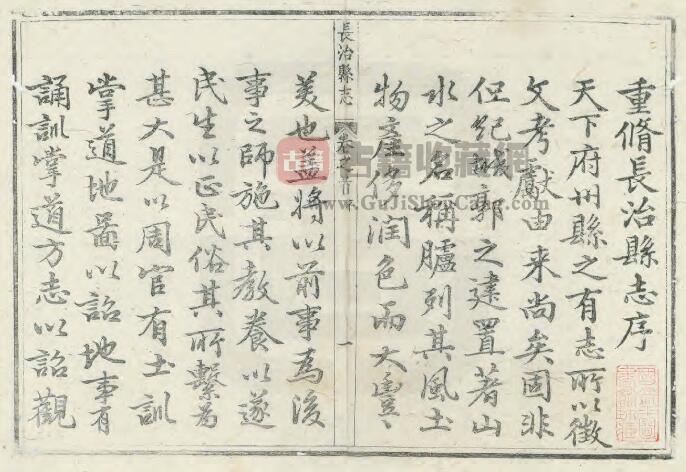 重脩長治縣志序
天下府州縣之有志所以徵
文考獻由来尚矣固非
但紀城郭之建置著山
水之名稱臚列其風土
物產侈潤色而大
長治縣志
卷之首
一
美也盖將以前事為後
事之師施其教養以遂
民生以正民俗其所繫為
甚大是以周官有土訓
掌道地啚以詔地事有
誦訓掌道方志以詔觀
古籍收藏網
www.GuJiShouCang.com